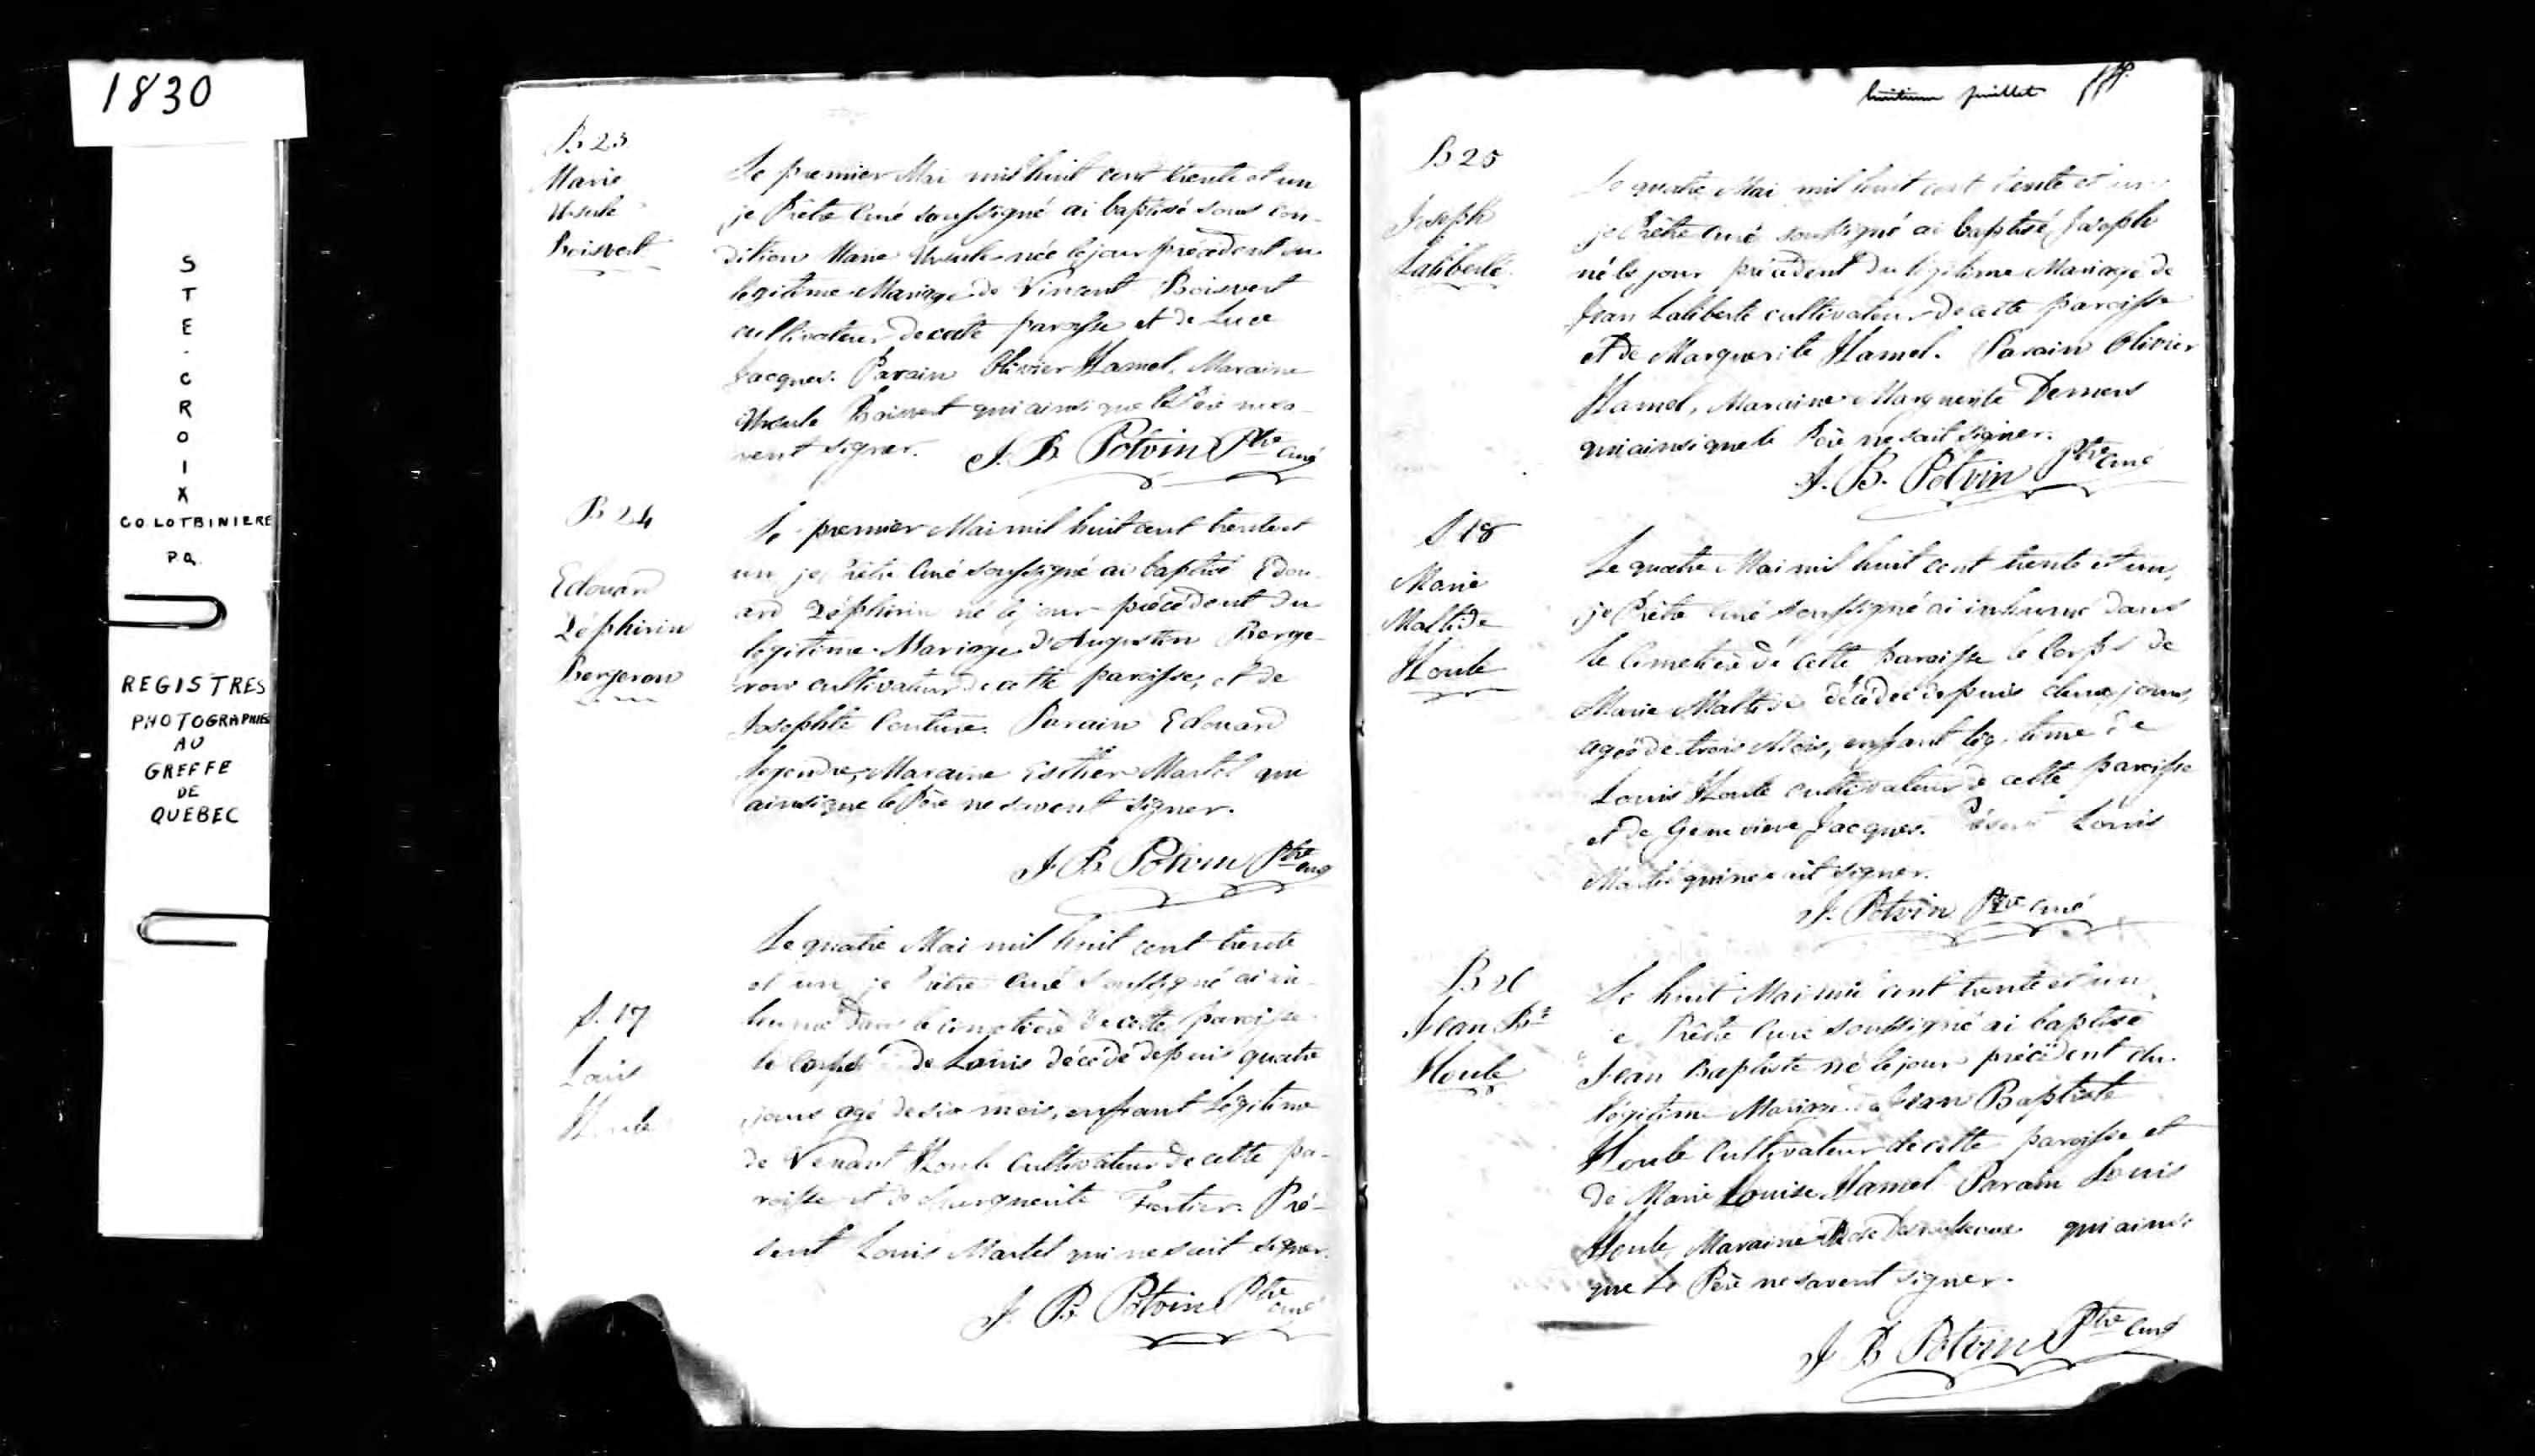 1830
STE-CROIX
CO. LOTBINIERE
P.Q.
REGISTRES
PHOTOGRAPHIES
AU
GREFFE
DE
QUEBEC
B 23
Marie
Ursule
Boisvert
Le premier Mai mil huit cent trente et un
je Prêtre Curé soussigné ai baptisé sous con-
dition Marie Ursule née le jour précédent du
legitime Mariage de Vincent Boisvert
cultivateur de cette paroisse et de Luce
Jacques. Parain Olivier Hamel, Maraine
Ursule Boisvert qui ainsi que le Père ne sa-
vent signer. J. B. Potvin Ptre Curé
B 24
Edouard
Zéphirin
Bergeron
Le premier Mai mil huit cent trente et
un je Prêtre Curé soussigné ai baptisé Edou-
ard Zéphirin né le jour précédent du
légitime Mariage d'Augustin Berge-
ron cultivateur de cette paroisse, et de
Josephte Couture. Parain Edouard
Legendre, Maraine Esther Martel qui
ainsi que le Père ne savent signer.
J. B. Potvin Ptre curé
S. 17
Louis
Houle
Le quatre Mai mil huit cent trente
et un je Prêtre Curé soussigné ai in-
humé dans le cimetière de cette paroisse
le Corps de Louis décédé depuis quatre
jours agé de six mois, enfant légitime
de Venant Houle Cultivateur de cette pa-
roisse et de Marguerite Fortier. Pré-
sent Louis Martel qui ne sait signer.
J. B. Potvin Ptre curé
huitieme feuillet
B 25
Joseph
Laliberté
Le quatre Mai mil huit cent trente et un
je Prêtre Curé soussigné ai baptisé Joseph
né le jour précédent du légitime Mariage de
Jean Laliberté cultivateur de cette paroisse
et de Marguerite Hamel. Parain Olivier
Hamel, Maraine Marguerite Demers
qui ainsi que le Père ne sait signer.
J. B. Potvin Ptre Curé
S 18
Marie
Maltide
Houle
Le quatre Mai mil huit cent trente et un,
je Prêtre Curé soussigné ai inhumé dans
le Cimetière de cette paroisse le Corps de
Marie Maltide décédée depuis deux jours,
agée de trois Mois, enfant légitime de
Louis Houle cultivateur de cette paroisse
et de Genevieve Jacques. Présent Louis
Martel qui ne sait signer.
J. Potvin Ptre curé
B 26
Jean Bte
Houle
Le huit Mai mil cent trente et un
je Prêtre Curé soussigné ai baptisé
Jean Baptiste né le jour précédent du
légitime Mariage de Jean Baptiste
Houle Cultivateur de cette paroisse et
de Marie Louise Hamel Parain Louis
Houle, Maraine qui ainsi
que Le Père ne savent signer.
J B Potvin Ptre Curé